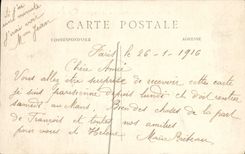 CARTE POSTALE
CORRESPONDANCE
ADRESSE
Paris le 26-1-1916
Chère Amie
Vous allez être surprise de recevoir cette carte
Je suis parisienne depuis lundi ch doit rentrer
samedi au Mans, Bien des choses de la part
de François et toutes nos amitiés
pour vous et Hélène
Marie